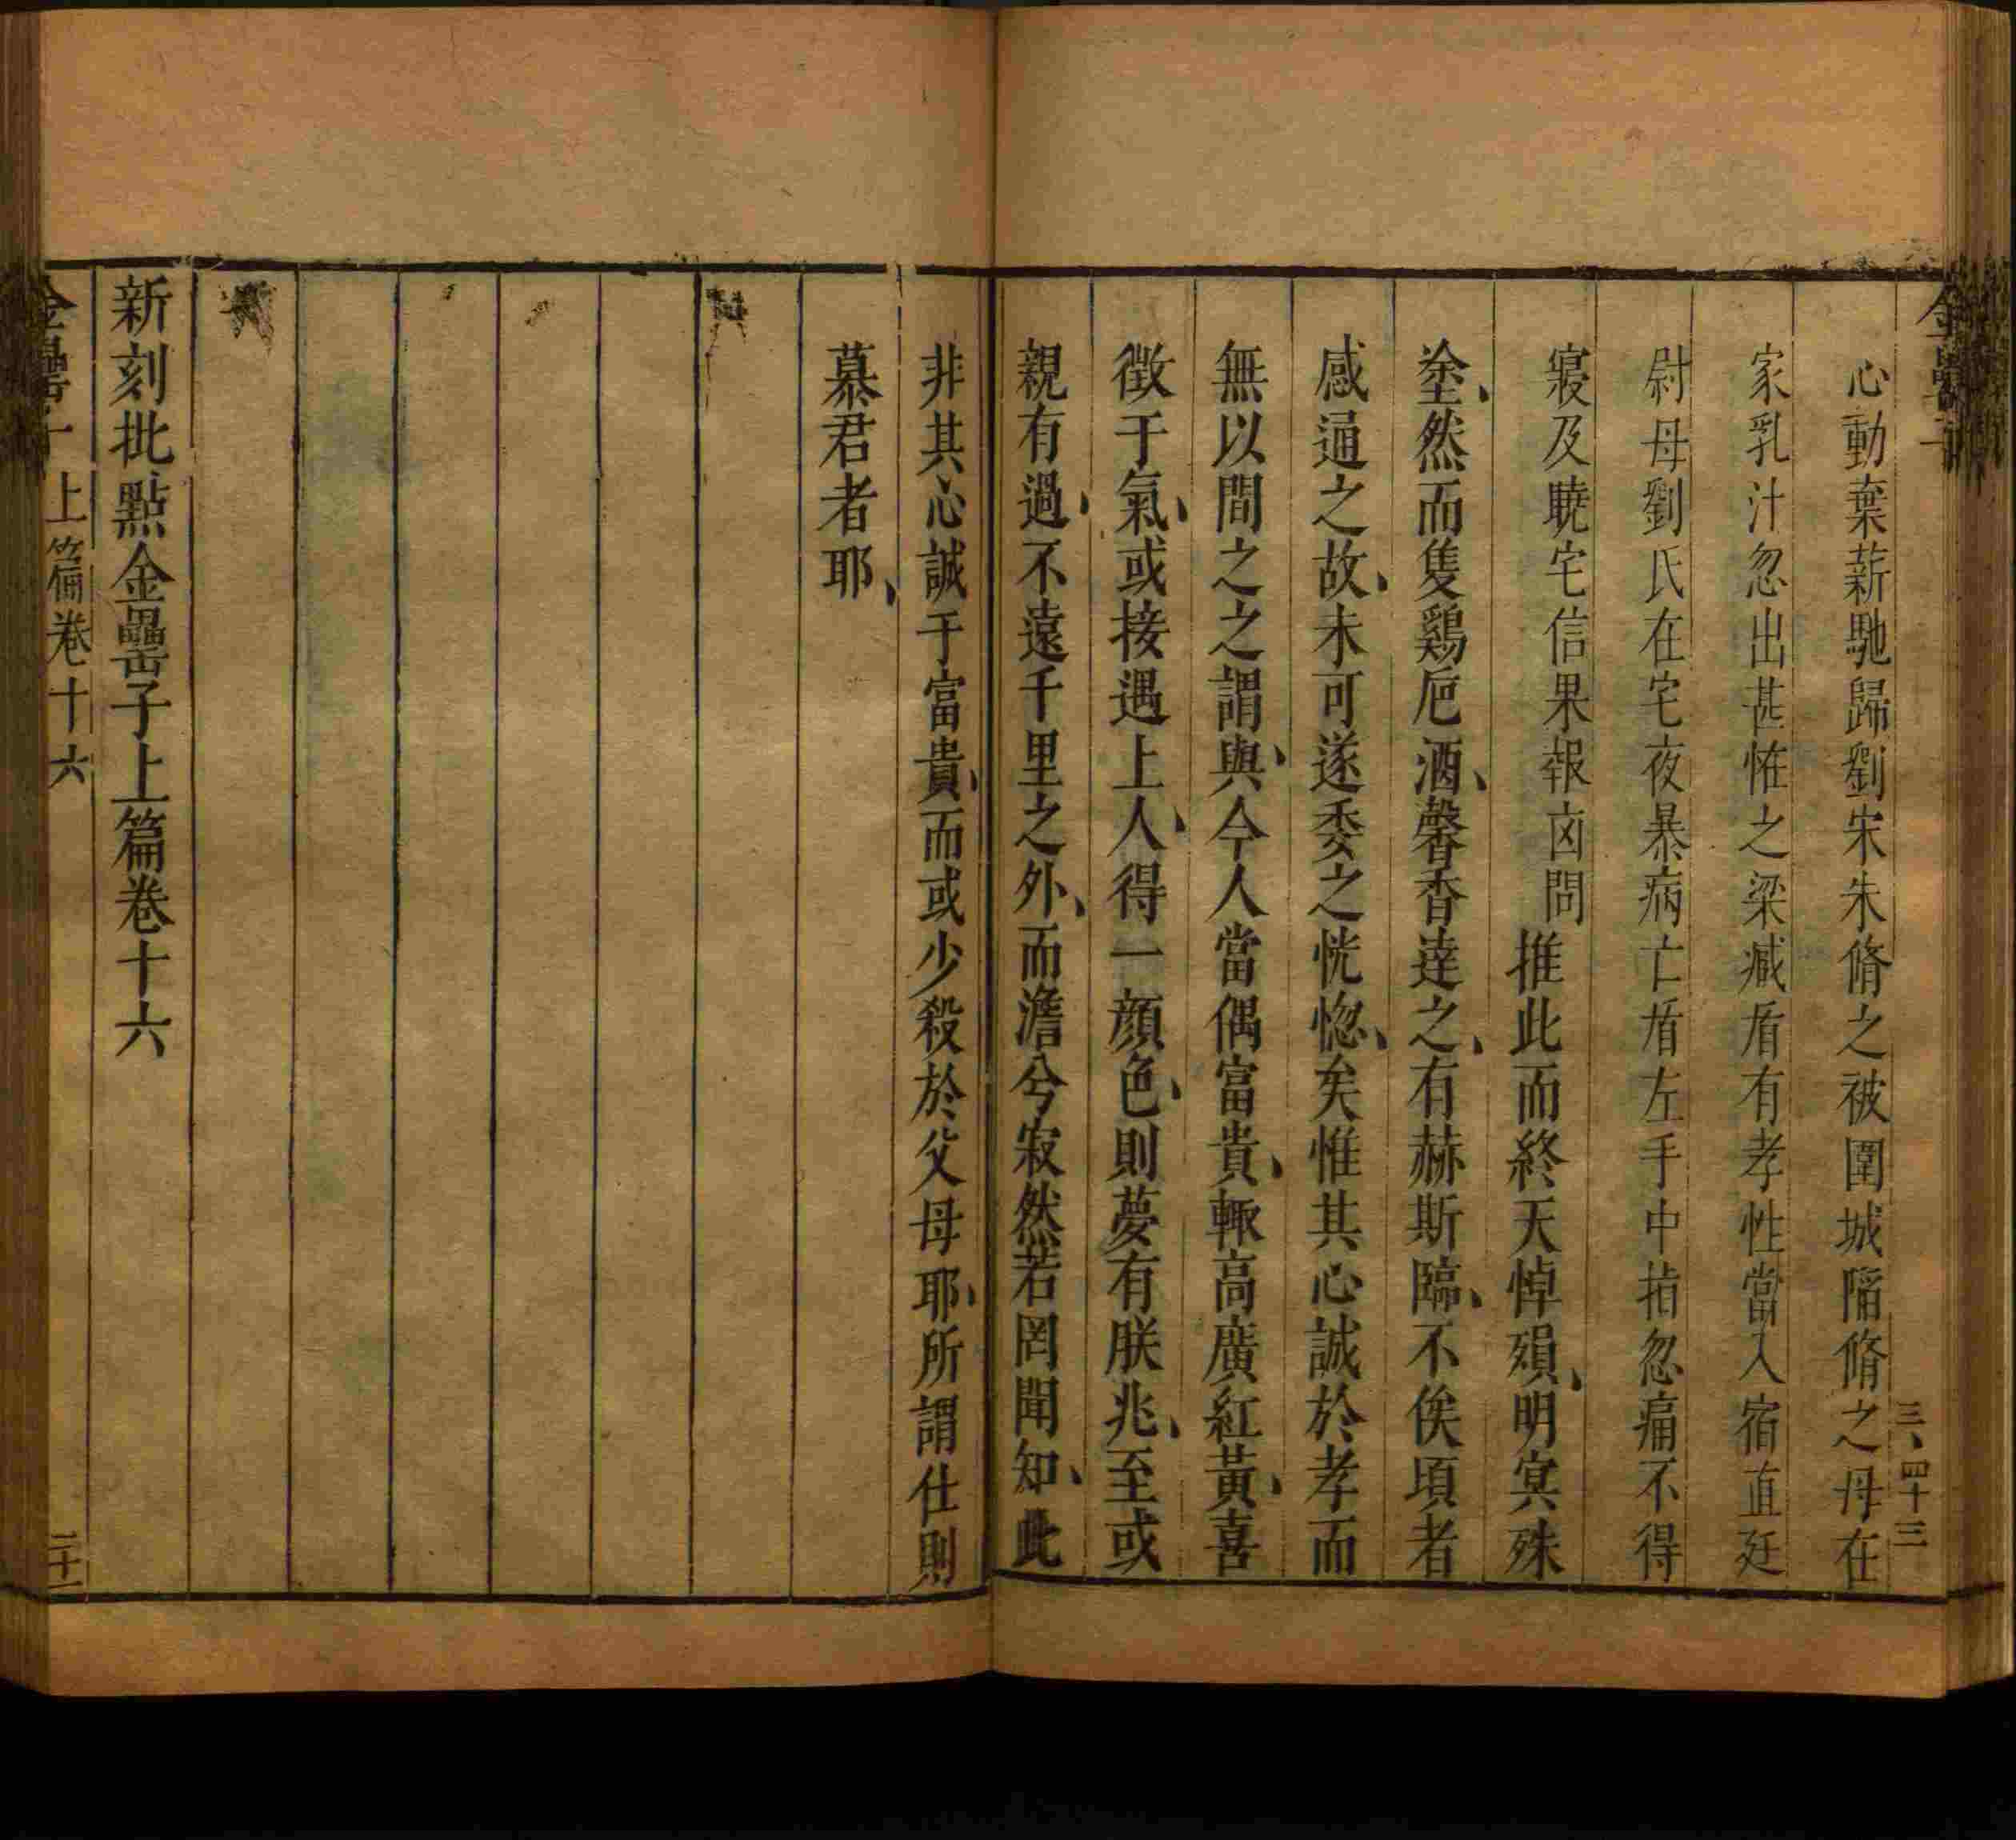 金罍子
三、四十三
心動棄薪馳歸劉宋朱脩之被圍城陷脩之母在
家乳汁忽出甚恠之梁臧盾有孝性當入宿直廷
尉母劉氏在宅夜暴病亡盾左手中指忽痛不得
寢及曉宅信果報凶問推此而終天悼殞、明冥殊
塗、然而隻鷄卮酒、馨香達之、有赫斯臨、不俟頃者
感通之故、未可遂委之恍惚、矣惟其心誠於孝而
無以間之之謂與、今人當偶富貴、輙高廣紅黃、喜
徵于氣、或接遇上人、得一顔色、則夢有朕兆、至或
親有過、不遠千里之外、而澹兮寂然若罔聞知、此
非其心誠于富貴、而或少殺於父母耶、所謂仕則
慕君者耶、
新刻批點金罍子上篇卷十六
金罍子 上篇卷十六 二十一